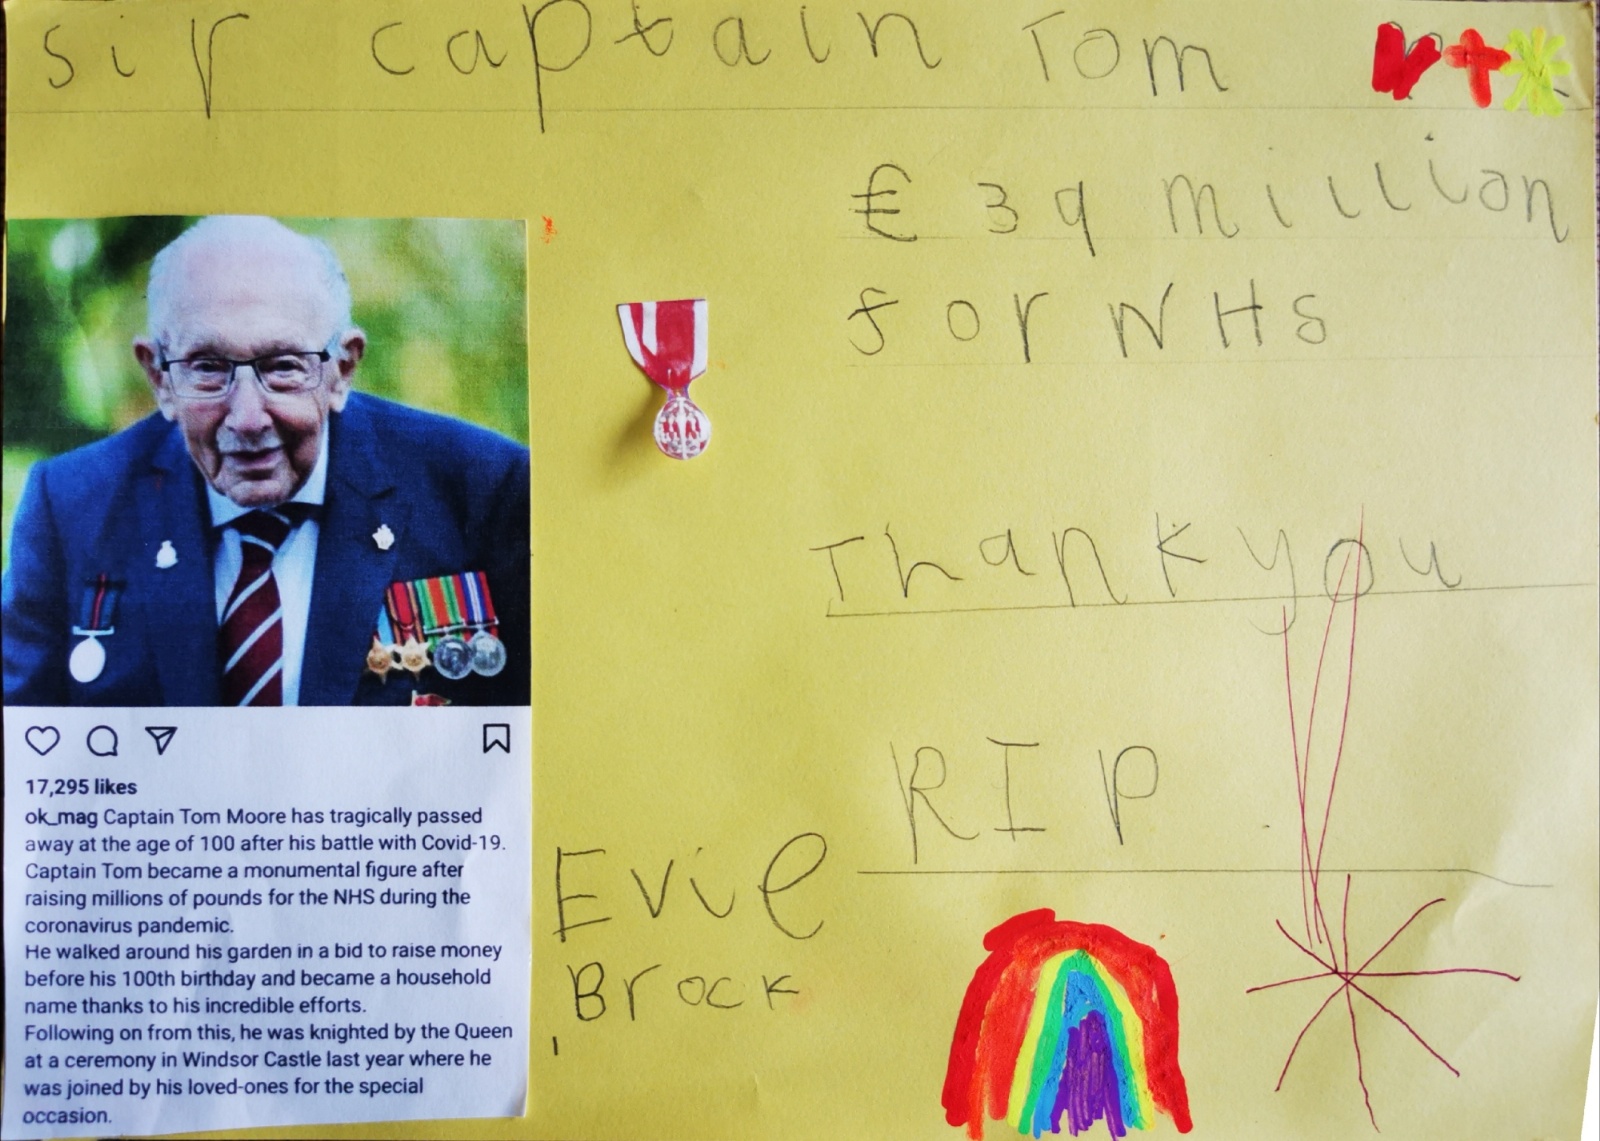 sir captain Tom
€ 39 million
for NHS
Thank you
RIP
Evie
Brock
17,295 likes
ok_mag Captain Tom Moore has tragically passed
away at the age of 100 after his battle with Covid-19.
Captain Tom became a monumental figure after
raising millions of pounds for the NHS during the
coronavirus pandemic.
He walked around his garden in a bid to raise money
before his 100th birthday and became a household
name thanks to his incredible efforts.
Following on from this, he was knighted by the Queen
at a ceremony in Windsor Castle last year where he
was joined by his loved-ones for the special
occasion.